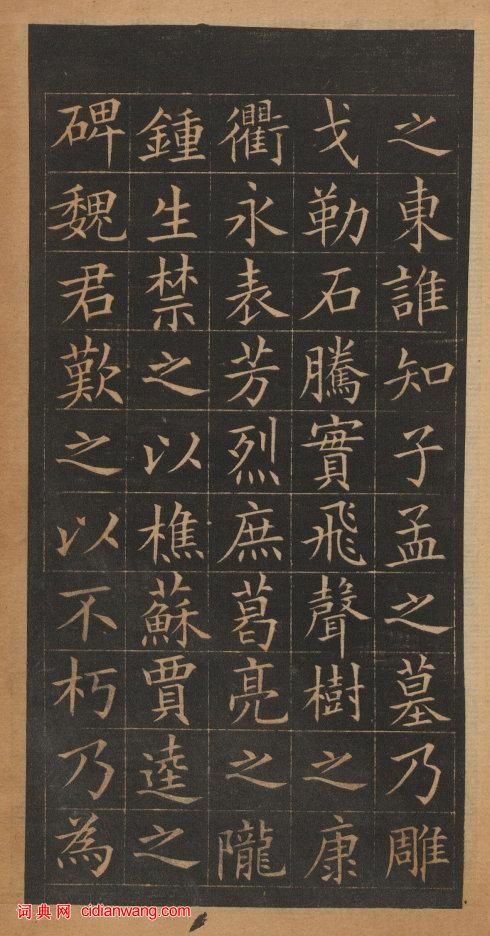 之東誰知子孟之墓乃雕
戈勒石騰實飛聲樹之康
衢永表芳烈庶葛亮之隴
鍾生禁之以樵蘇賈逵之
碑魏君歎之以不朽乃為
词典网 cidianwang.com